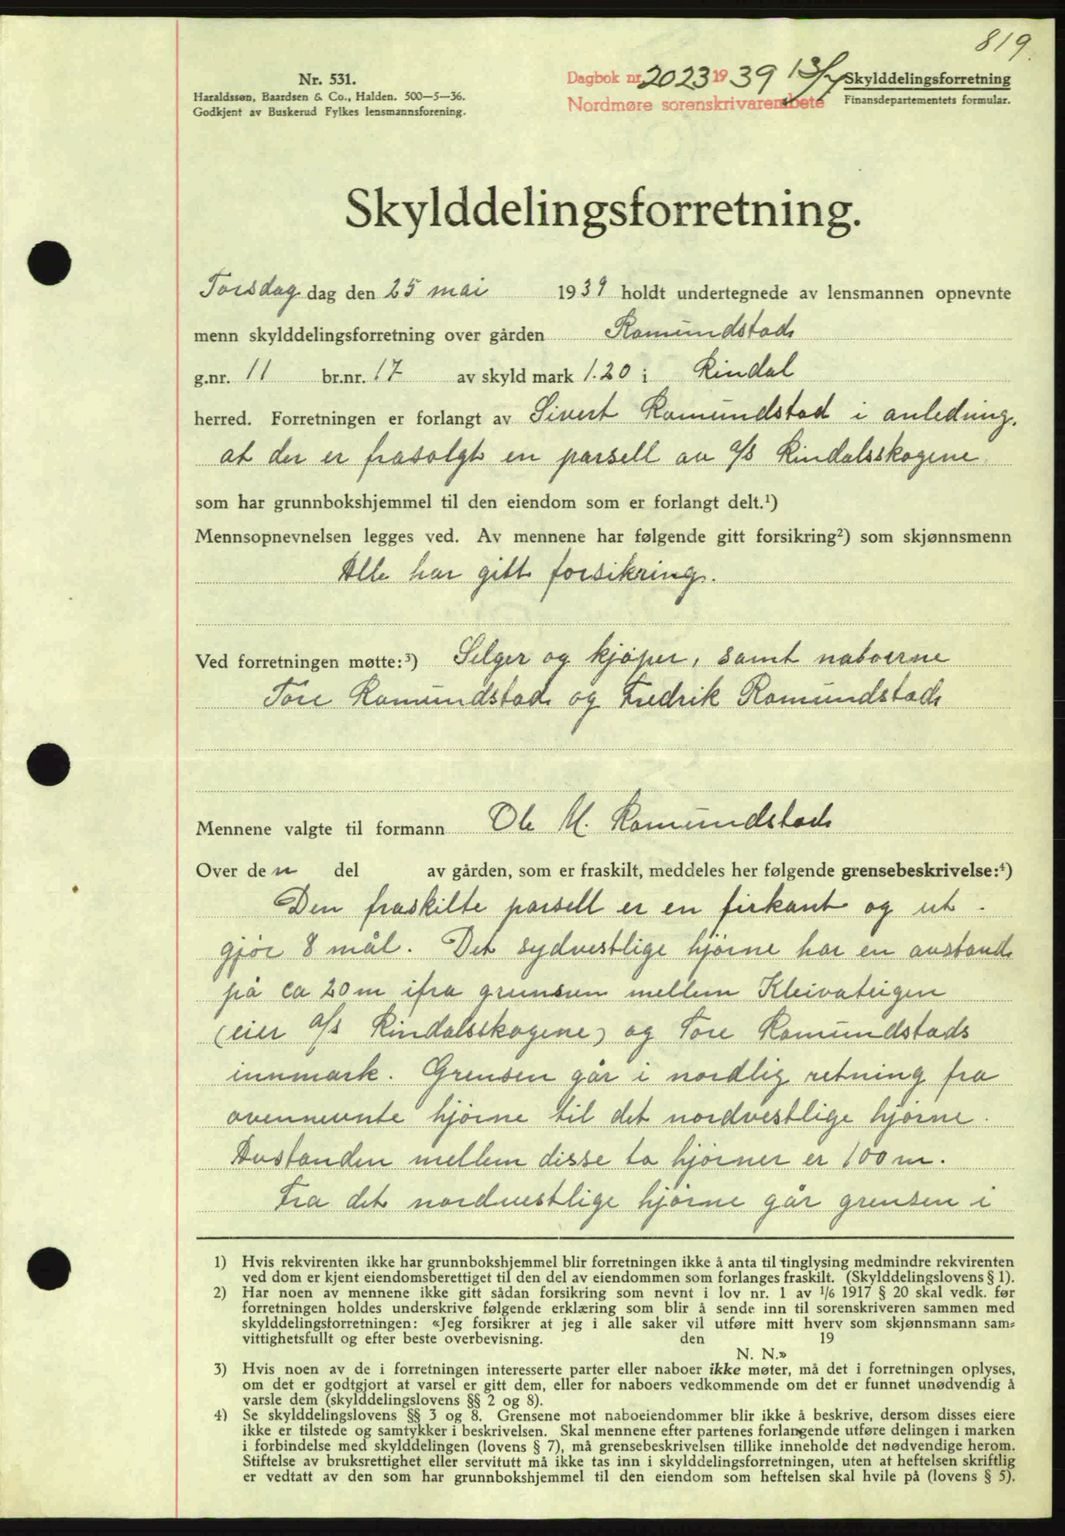 819.
Nr. 531.
Haraldssøn, Baardsen & Co., Halden. 500—5—36.
Godkjent av Buskerud Fylkes lensmannsforening.
Dagbok nr. 2023 1939 13/7
Nordmøre sorenskrivarembete
Skylddelingsforretning
Finansdepartementets formular.
Skylddelingsforretning.
Torsdag dag den 25 mai 1939 holdt undertegnede av lensmannen opnevnte
menn skylddelingsforretning over gården Romundstad
g.nr. 11 br.nr. 17 av skyld mark 1.20 i Rindal
herred. Forretningen er forlangt av Sivert Romundstad i anledning,
at der er frasolgt en parsell av a/s Rindalsskogene
som har grunnbokshjemmel til den eiendom som er forlangt delt.¹)
Mennsopnevnelsen legges ved. Av mennene har følgende gitt forsikring²) som skjønnsmenn
Alle har gitt forsikring.
Ved forretningen møtte:³) Selger og kjøper, samt naboerne
Tore Romundstad og Fredrik Romundstad
Mennene valgte til formann Ole M. Romundstad
Over den del av gården, som er fraskilt, meddeles her følgende grensebeskrivelse:⁴)
Den fraskilte parsell er en firkant og ut-
gjør 8 mål. Det sydvestlige hjørne har en avstand
på ca 20 m ifra grensen mellem Kleivateigen
(eier a/s Rindalsskogene) og Tore Romundstads
innmark. Grensen går i nordlig retning fra
ovennevnte hjørne til det nordvestlige hjørne.
Avstanden mellem disse to hjørner er 100 m.
Fra det nordvestlige hjørne går grensen i
1) Hvis rekvirenten ikke har grunnbokshjemmel blir forretningen ikke å anta til tinglysing medmindre rekvirenten
ved dom er kjent eiendomsberettiget til den del av eiendommen som forlanges fraskilt. (Skylddelingslovens § 1).
2) Har noen av mennene ikke gitt sådan forsikring som nevnt i lov nr. 1 av 1/6 1917 § 20 skal vedk. før
forretningen holdes underskrive følgende erklæring som blir å sende inn til sorenskriveren sammen med
skylddelingsforretningen: «Jeg forsikrer at jeg i alle saker vil utføre mitt hverv som skjønnsmann sam-
vittighetsfullt og efter beste overbevisning. den 19
N. N.»
3) Hvis noen av de i forretningen interesserte parter eller naboer ikke møter, må det i forretningen oplyses,
om det er godtgjort at varsel er gitt dem, eller for naboers vedkommende om det er funnet unødvendig å
varsle dem (skylddelingslovens §§ 2 og 8).
4) Se skylddelingslovens §§ 3 og 8. Grensene mot naboeiendommer blir ikke å beskrive, dersom disses eiere
ikke er tilstede og samtykker i beskrivelsen. Skal mennene efter partenes forlangende utføre delingen i marken
i forbindelse med skylddelingen (lovens § 7), må grensebeskrivelsen tillike inneholde det nødvendige herom.
Stiftelse av bruksrettighet eller servitutt må ikke tas inn i skylddelingsforretningen, uten at heftelsen skriftlig
er vedtatt av den som har grunnbokshjemmel til den eiendom som heftelsen skal hvile på (lovens § 5).